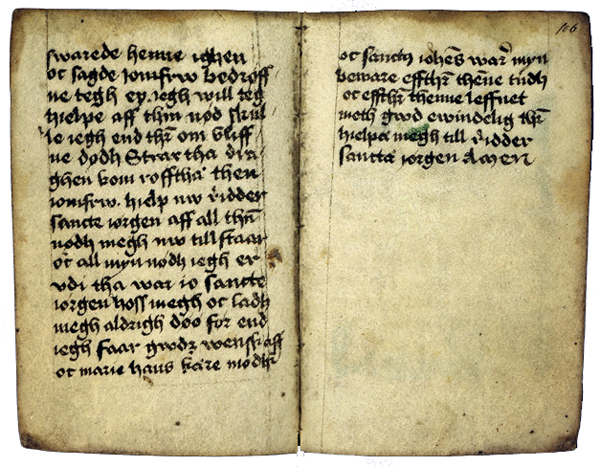 swarede henne ighen
oc sagde Iomfrw bedröff
ue tegh ey. iegh will teg
hielpe aff thin nød skul
le iegh end thr̄ om bliff
ue dødh Strax tha dra
ghen kom rofftha then
iomfrw. hielp nw ridder
sancte iorgen aff all thn̄
nodh megh nw till staar
oc all myn nodh iegh er
vdi tha war io sancte
iorgen hoss megh oc ladh
megh aldrigh doo for end
iegh faar gwdz wenskaff
oc marie hans kære modhr̄
106
oc sanctj iohēs war myn
beware effthr̄ thēne tiidh
oc effthr̄ thenne leffnet
meth gwd ewindelig thr̄
hielpa megh till ridder
sancta iorgen Amen